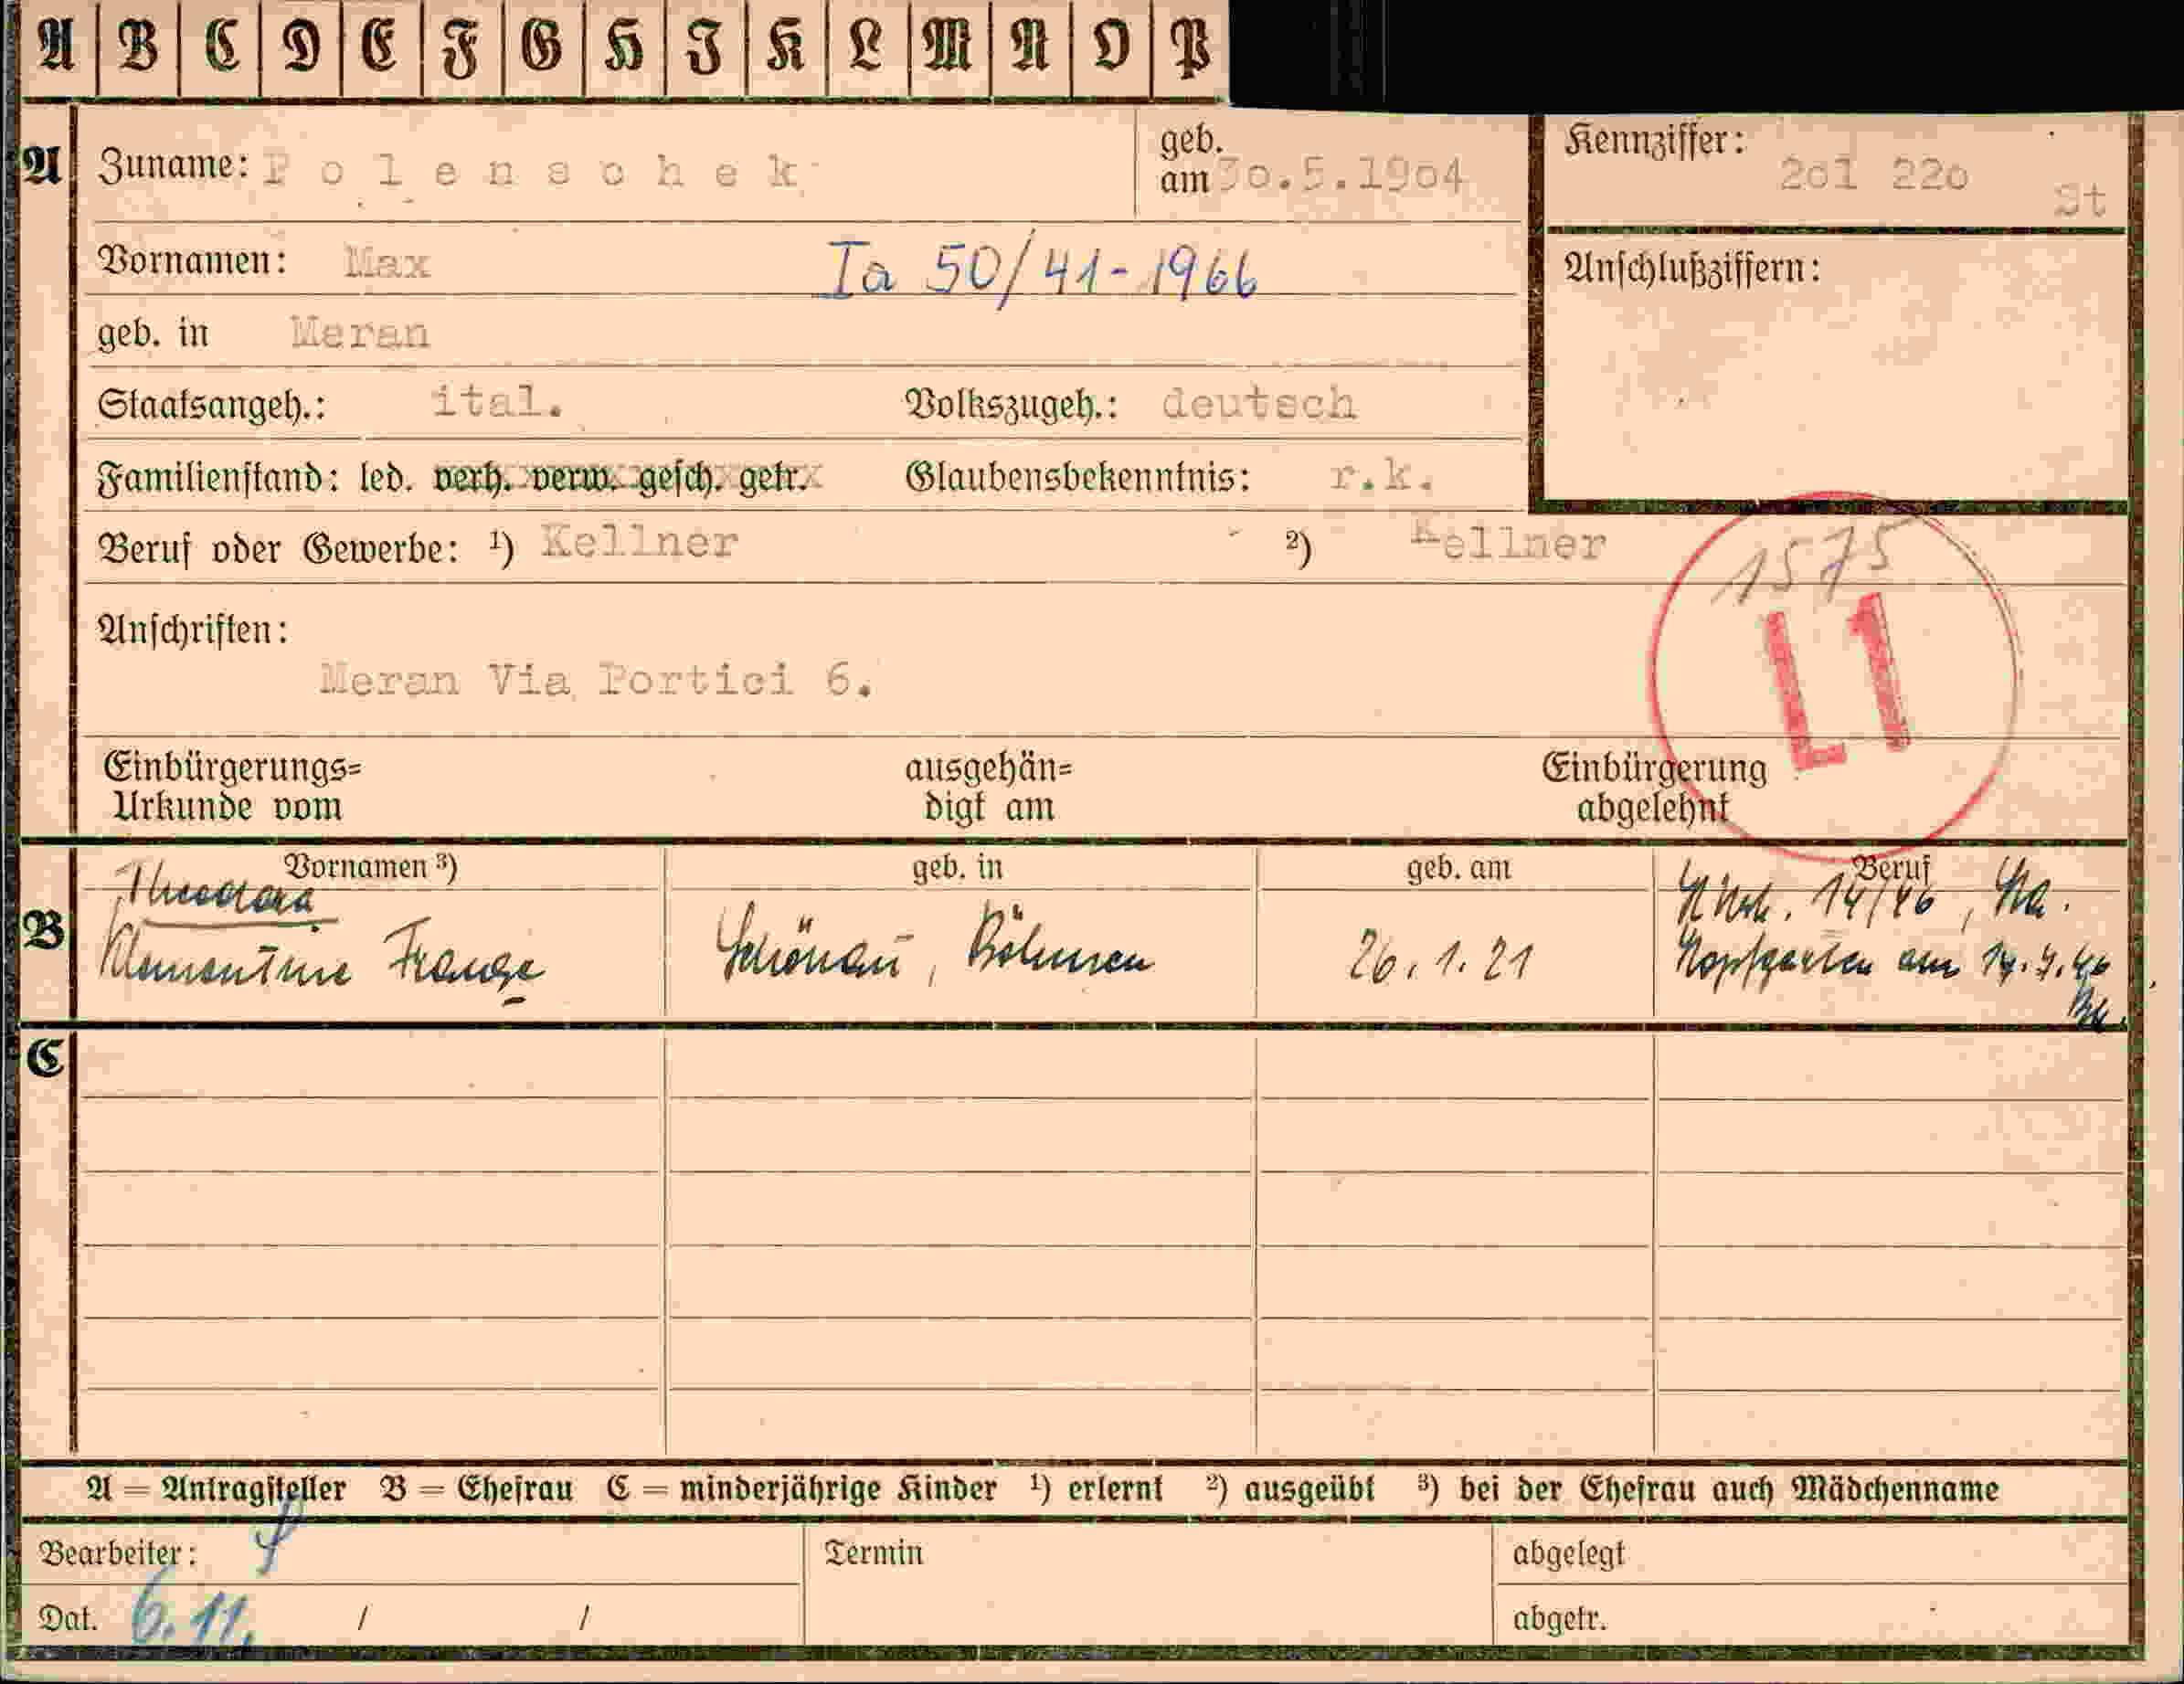 A B C D E F G H I K L M N O P
A Zuname: Polenschek geb. am 30.5.1904 Kennziffer: 201 220 St
Vornamen: Max Ia 50/41-1966 Anschlußziffern:
geb. in Meran
Staatsangeh.: ital. Volkszugeh.: deutsch
Familienstand: led. verh. verw. gesch. getr. Glaubensbekenntnis: r.k.
Beruf oder Gewerbe: ¹) Kellner ²) Kellner
1575
L1
Anschriften:
Meran Via Portici 6.
Einbürgerungs= ausgehän= Einbürgerung
Urkunde vom digt am abgelehnt
B Vornamen ³) geb. in geb. am Beruf
Theodora 14/46, Sta.
Klementine Schönau, Böhmen 26.1.21 Hopfgarten am
C
A = Antragsteller B = Ehefrau C = minderjährige Kinder ¹) erlernt ²) ausgeübt ³) bei der Ehefrau auch Mädchenname
Bearbeiter: Termin abgelegt
Dat. 6.11. / / abgetr.